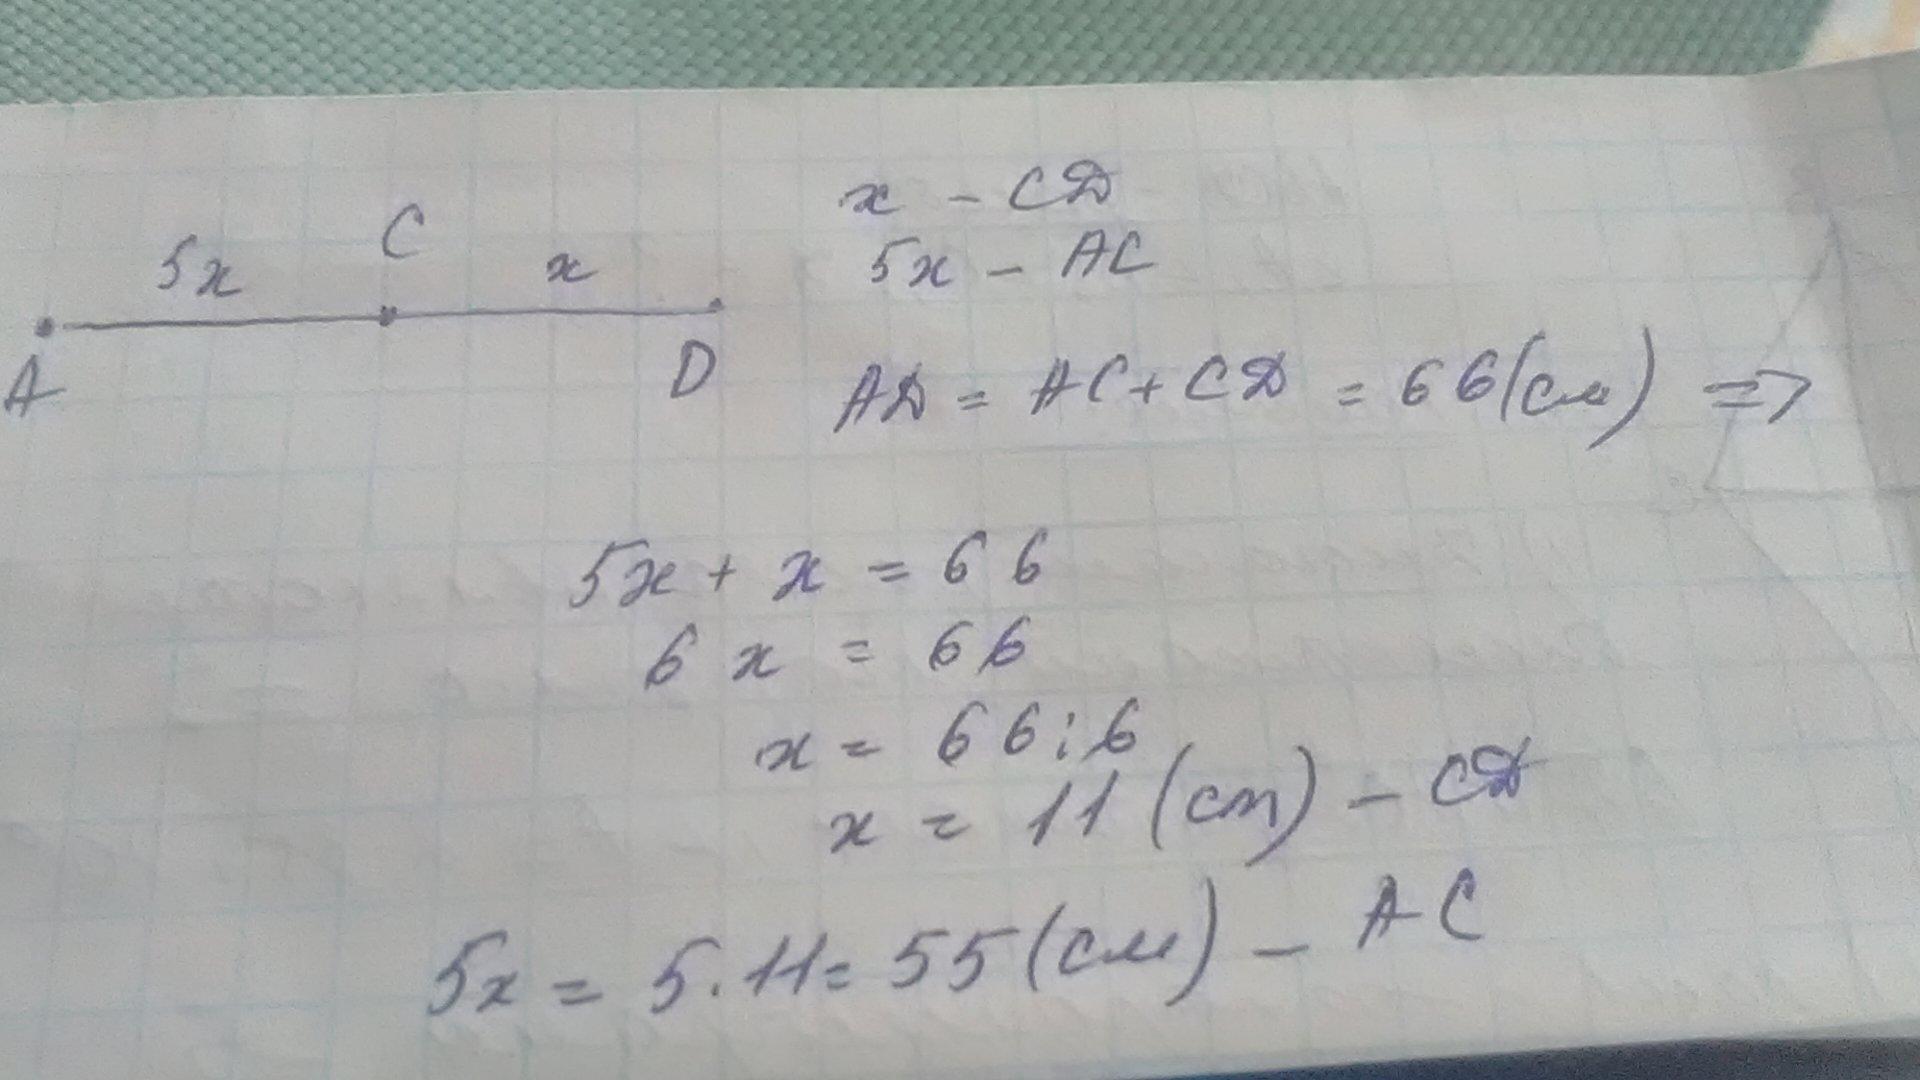 5x C x
A D
x – CD
5x – AC
AD = AC + CD = 66 (см) =>
5x + x = 66
6x = 66
x = 66 : 6
x = 11 (см) – CD
5x = 5 . 11 = 55 (см) – AC